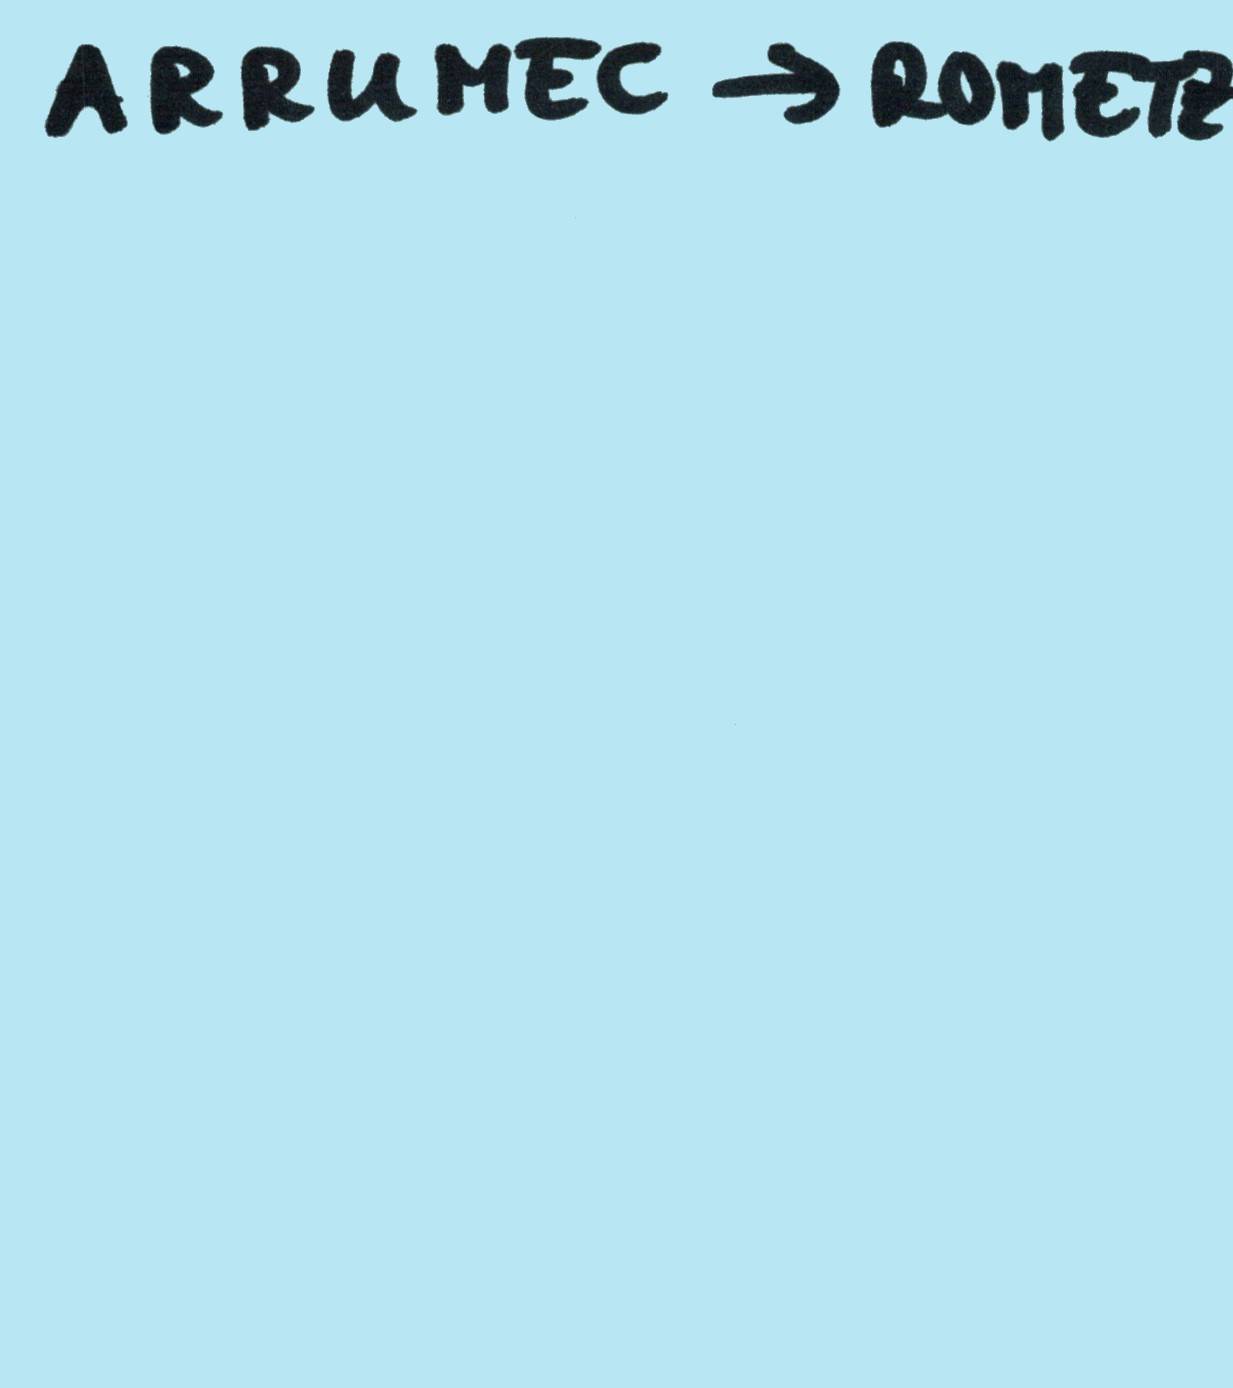 ARRUMEC → ROMETE